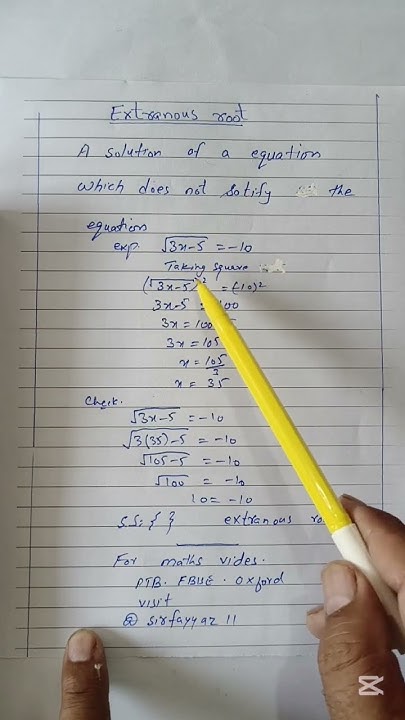 Extranous root
A solution of a equation
which does not satisfy the
equation
exp. √3x-5 = -10
Taking square
(√3x-5)² = (-10)²
3x-5 = 100
3x = 100
3x = 105
x = 105/3
x = 35
Check.
√3x-5 = -10
√3(35)-5 = -10
√105-5 = -10
√100 = -10
10 = -10
S.S: { } extranous
For maths vides.
PTB. FBISE. Oxford
visit
@ sirfayyaz 11